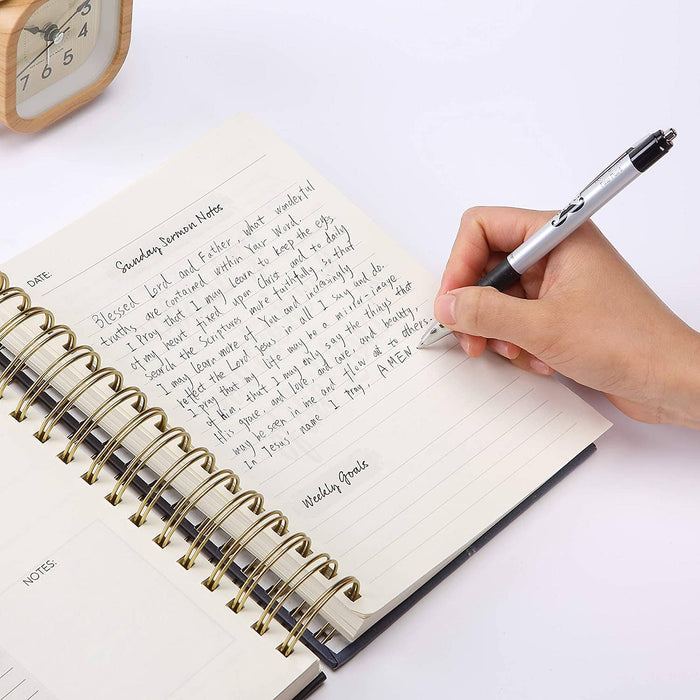 DATE:
Sunday Sermon Notes
Blessed Lord and Father, what wonderful
truths are contained within Your Word.
I Pray that I may learn to keep the eyes
of my heart fixed upon Christ and to daily
search the Scriptures more faithfully, so that
I may learn more of You and increasingly
reflect the Lord Jesus in all I say and do.
I pray that my life may be a mirror-image
of Him, that I may only say the things that
His grace, and love, and care, and beauty,
may be seen in me and flow out to others.
In Jesus' name I pray, AMEN
Weekly Goals
NOTES:
10
9
8
7
6
5
4